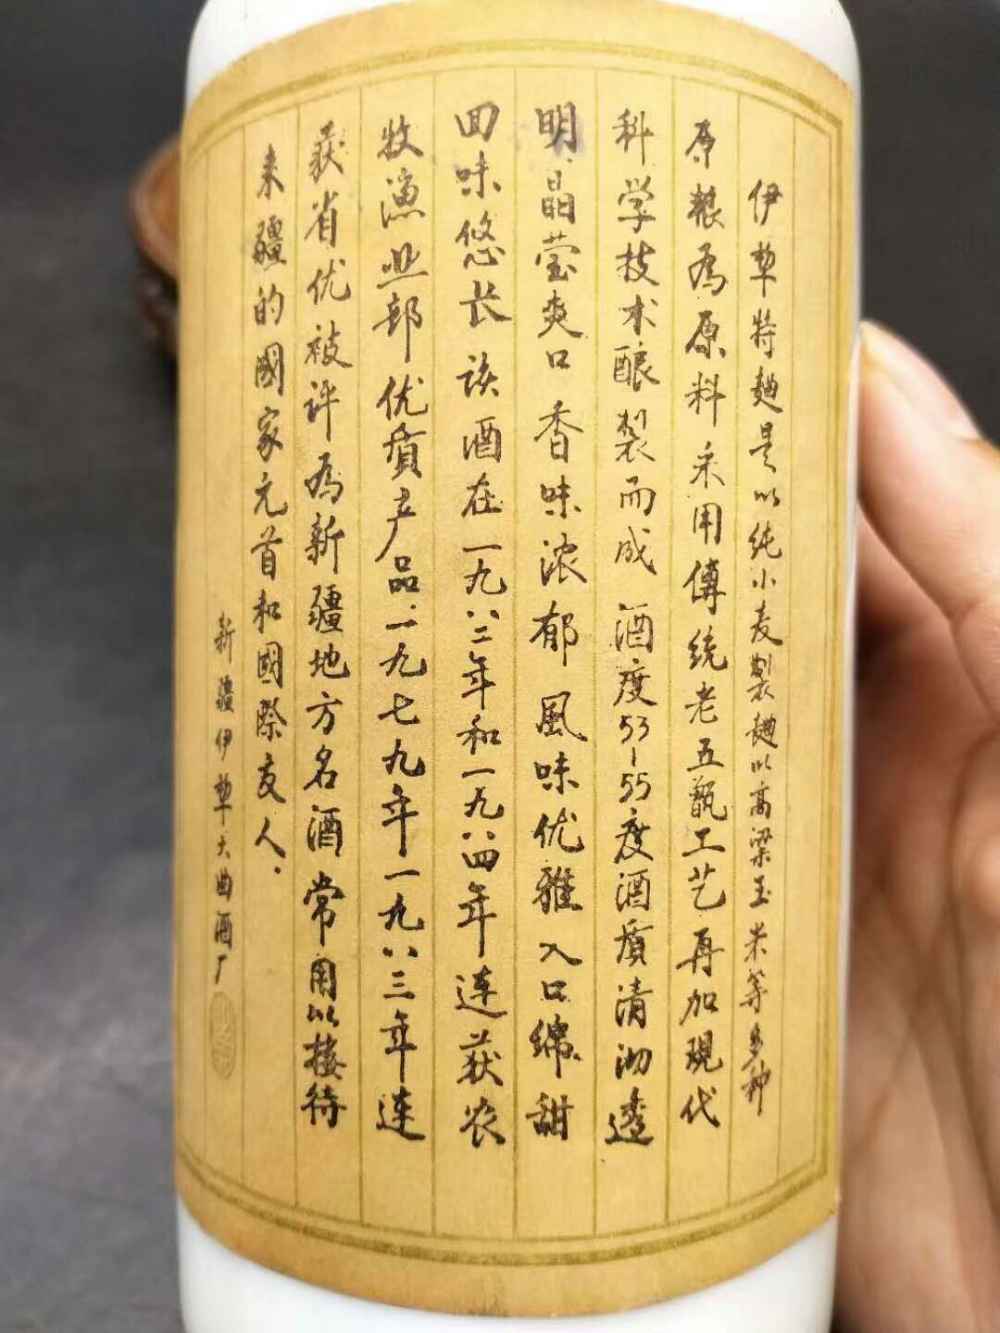 伊犂特麯是以纯小麦製麯以高梁玉米等多种
原粮为原料采用傳统老五甑工艺再加現代
科学技术酿製而成 酒度53-55度酒質清沏透
明、晶莹爽口 香味浓郁 風味优雅 入口绵甜
回味悠长 该酒在一九八二年和一九八四年连获农
牧渔业部优質产品.一九七九年一九八三年连
获省优被评为新疆地方名酒常用以接待
来疆的國家元首和國際友人.
新疆伊犂大曲酒厂